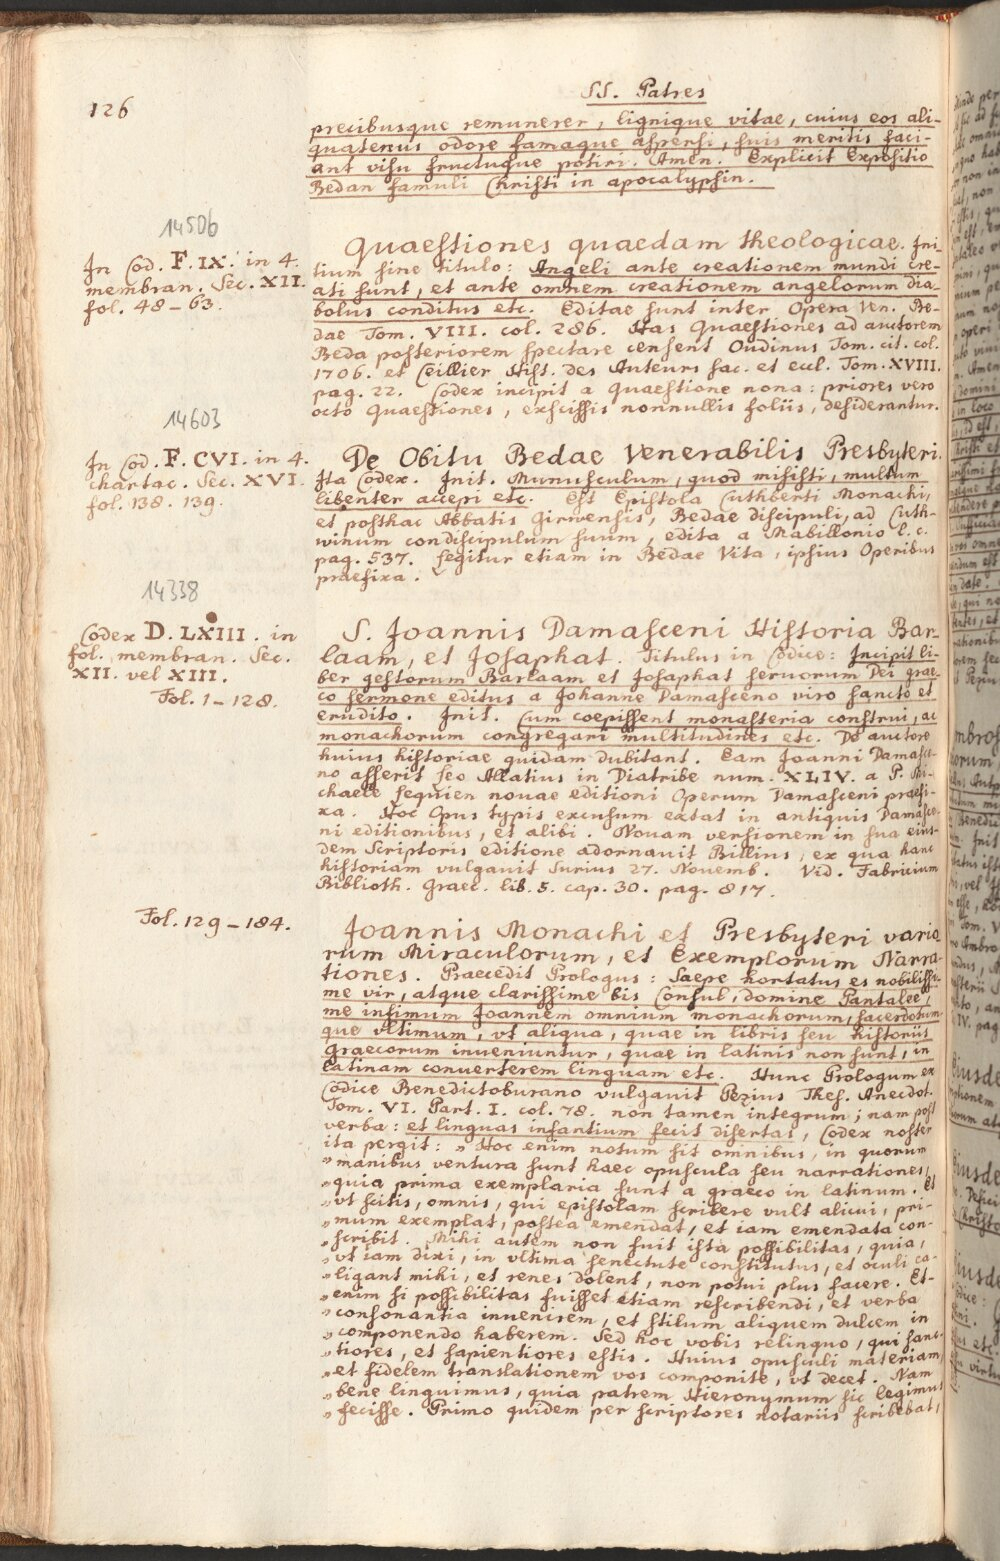 126
SS. Patres
precibusque remunerer, lignique vitae, cuius eos ali-
quatenus odore famaque aspersi, suis meritis faci-
ant visu fructuque potiri. Amen. Explicit Expositio
Bedan famuli Christi in apocalypsin.
14506
In Cod. F. IX. in 4.
membran. Sec. XII.
fol. 48-63.
Quaestiones quaedam theologicae. Ini-
tium sine titulo: Angeli ante creationem mundi cre-
ati sunt, et ante omnem creationem angelorum dia-
bolus conditus etc. Editae sunt inter Opera Ven. Be-
dae Tom. VIII. col. 286. Has Quaestiones ad auctorem
Beda posteriorem spectare censent Oudinus Tom. cit. col.
1706. et Ceillier Hist. des Auteurs sac. et eccl. Tom. XVIII.
pag. 22. Codex incipit a quaestione nona: priores vero
octo Quaestiones, exscissis nonnullis foliis, desiderantur.
14603
In Cod. F. CVI. in 4.
chartac. Sec. XVI.
fol. 138. 139.
De Obitu Bedae Venerabilis Presbyteri.
Ita Codex. Init. Munusculum, quod misisti, multum
libenter accepi etc. Est Epistola Cuthberti Monachi,
et posthac Abbatis Girwensis, Bedae discipuli, ad Cuth-
winum condiscipulum suum, edita a Mabillonio l. c.
pag. 537. Legitur etiam in Bedae Vita, ipsius Operibus
praefixa.
14338
Codex D. LXIII. in
fol. membran. Sec.
XII. vel XIII.
Fol. 1-128.
S. Joannis Damasceni Historia Bar-
laam, et Josaphat. Titulus in Codice: Incipit li-
ber gestorum Barlaam et Josaphat servorum Dei grae-
co sermone editus a Johanne Damasceno viro sancto et
erudito. Init. Cum coepissent monasteria construi, ac
monachorum congregari multitudines etc. De auctore
huius historiae quidam dubitant. Eam Joanni Damasce-
no asserit Leo Allatius in Diatribe num. XLIV. a P. Mi-
chaele Lequien novae editioni Operum Damasceni praefi-
xa. Hoc Opus typis excusum extat in antiquis Damasce-
ni editionibus, et alibi. Novam versionem in sua eius-
dem Scriptoris editione adornavit Billius, ex qua hanc
historiam vulgavit Surius 27. Novemb. Vid. Fabricium
Biblioth. Graec. lib. 5. cap. 30. pag. 817.
Fol. 129-184.
Joannis Monachi et Presbyteri vario
rum Miraculorum, et Exemplorum Narra-
tiones. Praecedit Prologus: Saepe hortatus es nobilissi-
me vir, atque clarissime bis Consul, domine Pantalee,
me infimum Joannem omnium monachorum, sacerdotum
que vltimum, vt aliqua, quae in libris seu historiis
Graecorum inveniuntur, quae in latinis non sunt, in
latinam converterem linguam etc. Hunc Prologum ex
Codice Benedictoburano vulgavit Pezius Thes. Anecdot.
Tom. VI. Part. I. col. 78. non tamen integrum; nam post
verba: et linguas infantium fecit disertas, Codex noster
ita pergit: „Hoc enim notum sit omnibus, in quorum
„manibus ventura sunt haec opuscula seu narrationes,
„quia prima exemplaria sunt a graeco in latinum. Et
„vt scitis, omnis, qui epistolam scribere vult alicui, pri-
„mum exemplat, postea emendat, et iam emendata con-
„scribit. Mihi autem non fuit ista possibilitas, quia,
„vt iam dixi, in vltima senectute constitutus, et oculi ca-
„ligant mihi, et renes dolent, non potui plus facere. Et-
„enim si possibilitas fuisset etiam rescribendi, et verba
„consonantia invenirem, et stilum aliquem dulcem in
„componendo haberem. Sed hoc vobis relinquo, qui sanc-
„tiores, et sapientiores estis. Huius opusculi materiam,
„et fidelem translationem vos componite, vt decet. Nam
„bene linquimus, quia patrem Hieronymum sic legimus
„fecisse. Primo quidem per scriptores notariis scribebat,